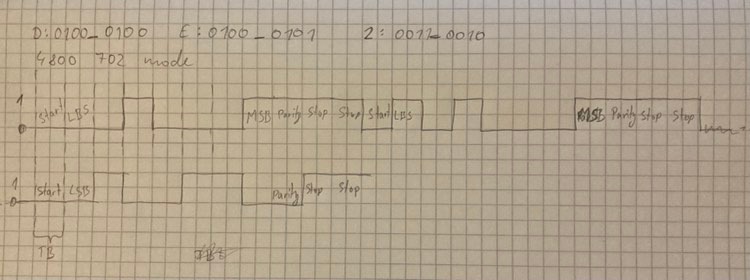 D: 0100_0100 E: 0100_0101 2: 0011_0010
4800 702 mode
1 Start LBS MSB Parity Stop Stop Start LBS MSB Parity Stop Stop
0
1 Start LSB Parity Stop Stop
0
TB